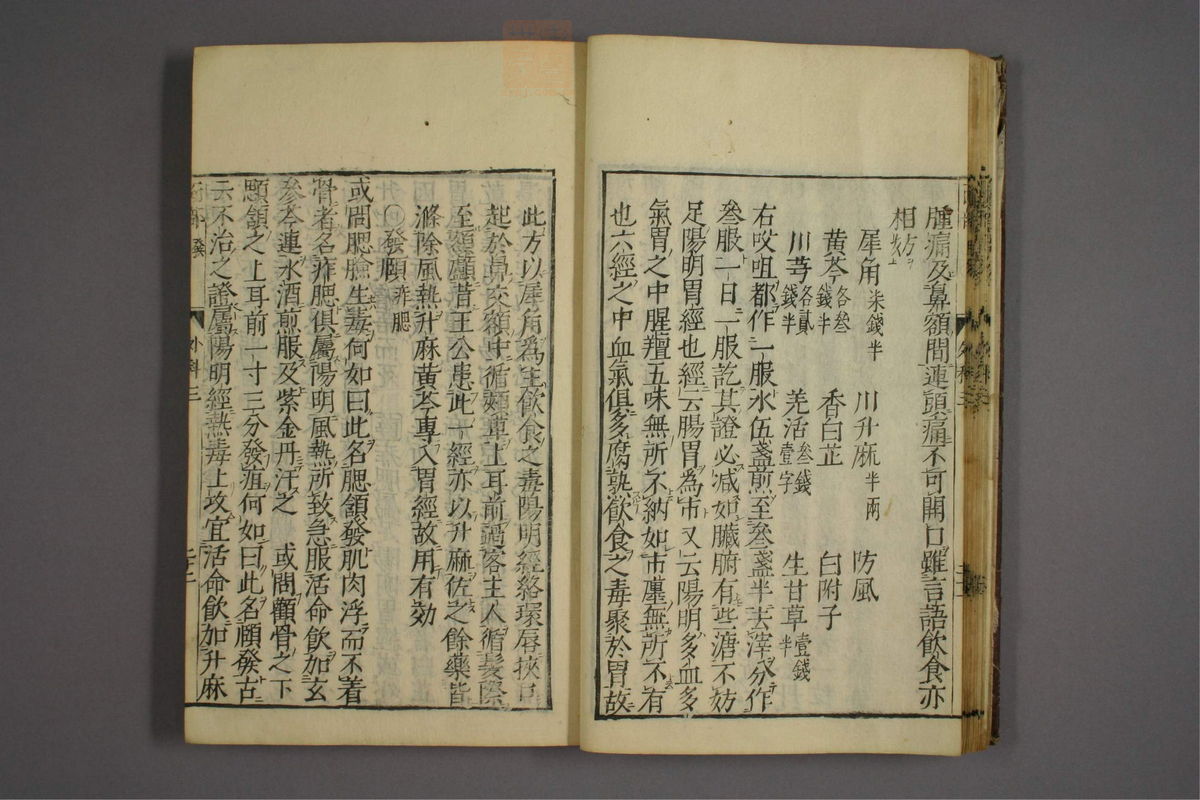 腫痛及鼻額間連頭痛不可開口雖言語飲食亦
相妨
犀角 柒錢半 川升麻 半兩 防風
黃芩 各叁錢半 香白芷 白附子
川芎 各貳錢半 羌活 叁錢壹字 生甘草 壹錢半
右㕮咀都作一服水伍盞煎至叁盞半去滓分作
叁服一日一服訖其證必减如臟腑有些溏不妨
足陽明胃經也經云腸胃爲市又云陽明多血多
氣胃之中腥羶五味無所不納如市廛無所不有
也六經之中血氣俱多腐熟飲食之毒聚於胃故
此方以犀角爲主飲食之毒陽明經絡環唇挾口
起於鼻交額中循頰車上耳前過客主人循髮際
至額顱昔王公患此一經亦以升麻佐之餘藥皆
滌除風熱升麻黃芩專入胃經故用有効
〇發頤 痄腮
或問腮臉生毒何如曰此名腮頷發肌肉浮而不着
骨者名痄腮俱屬陽明風熱所致急服活命飲加玄
參芩連水酒煎服及紫金丹汗之 或問顴骨之下
顋頷之上耳前一寸三分發疽何如曰此名頤發古
云不治之證屬陽明經熱毒上攻宜活命飲加升麻
外科三